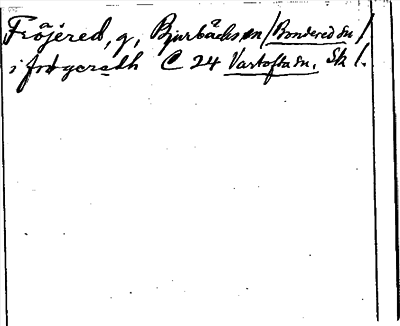 Fröjered, g, Bjurbäcks sn /Bondered sn/
i frögeradh C 24 Vartofta sn. Sk l.